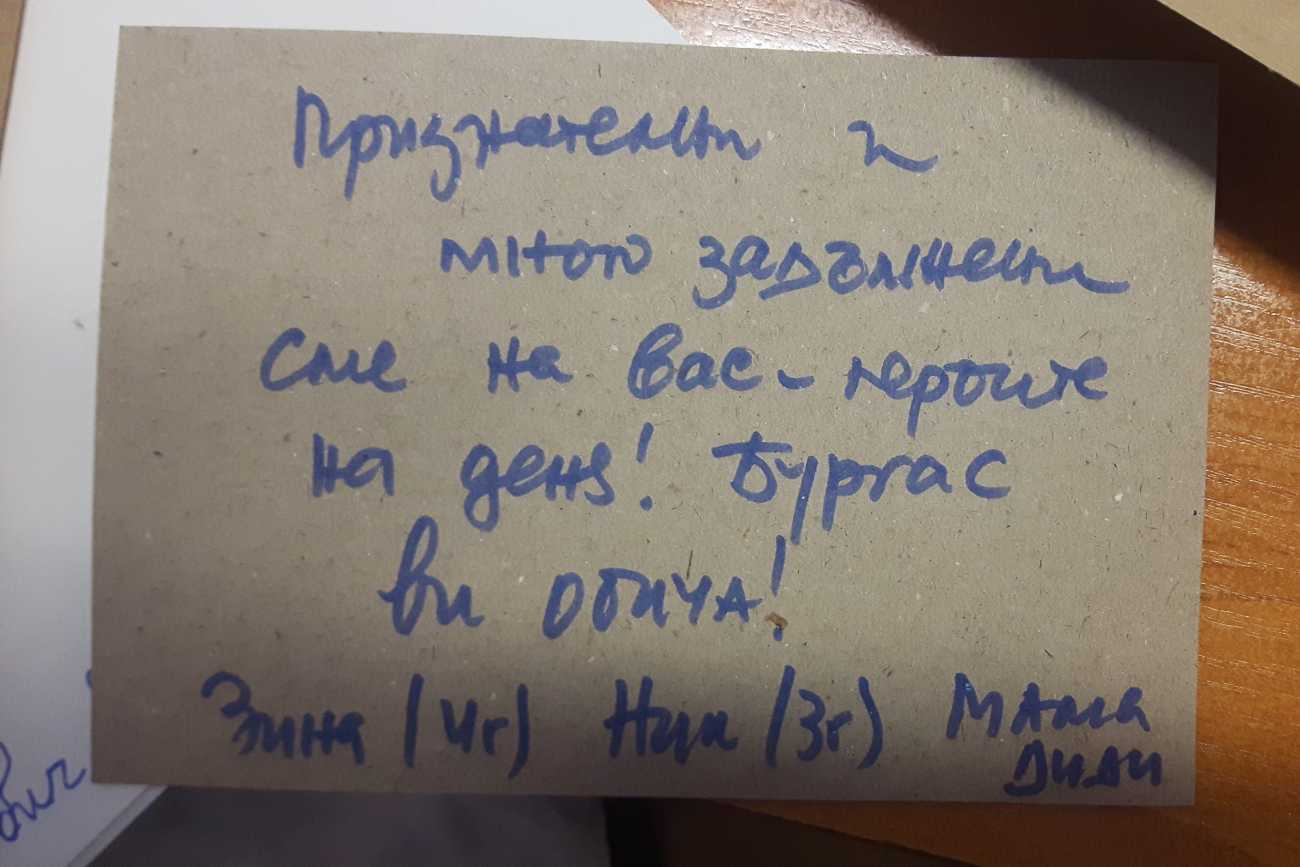 Признателни и
много задължени
сме на вас - героите
на деня! Бургас
ви обича!
(4г) Ники (3г) Мама
Диди